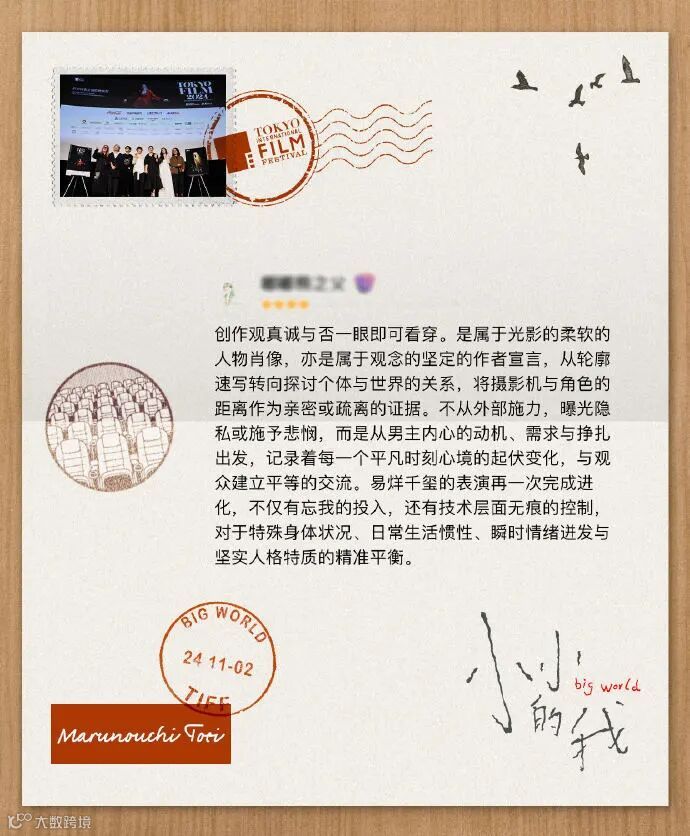 TOKYO
FILM
2024
TOKYO
INTERNATIONAL
FILM
FESTIVAL
之父
创作观真诚与否一眼即可看穿。是属于光影的柔软的
人物肖像，亦是属于观念的坚定的作者宣言，从轮廓
速写转向探讨个体与世界的关系，将摄影机与角色的
距离作为亲密或疏离的证据。不从外部施力，曝光隐
私或施予悲悯，而是从男主内心的动机、需求与挣扎
出发，记录着每一个平凡时刻心境的起伏变化，与观
众建立平等的交流。易烊千玺的表演再一次完成进
化，不仅有忘我的投入，还有技术层面无痕的控制，
对于特殊身体状况、日常生活惯性、瞬时情绪迸发与
坚实人格特质的精准平衡。
BIG WORLD
24 11-02
TIFF
Marunouchi Toei
小小
big world
的我
大数跨境